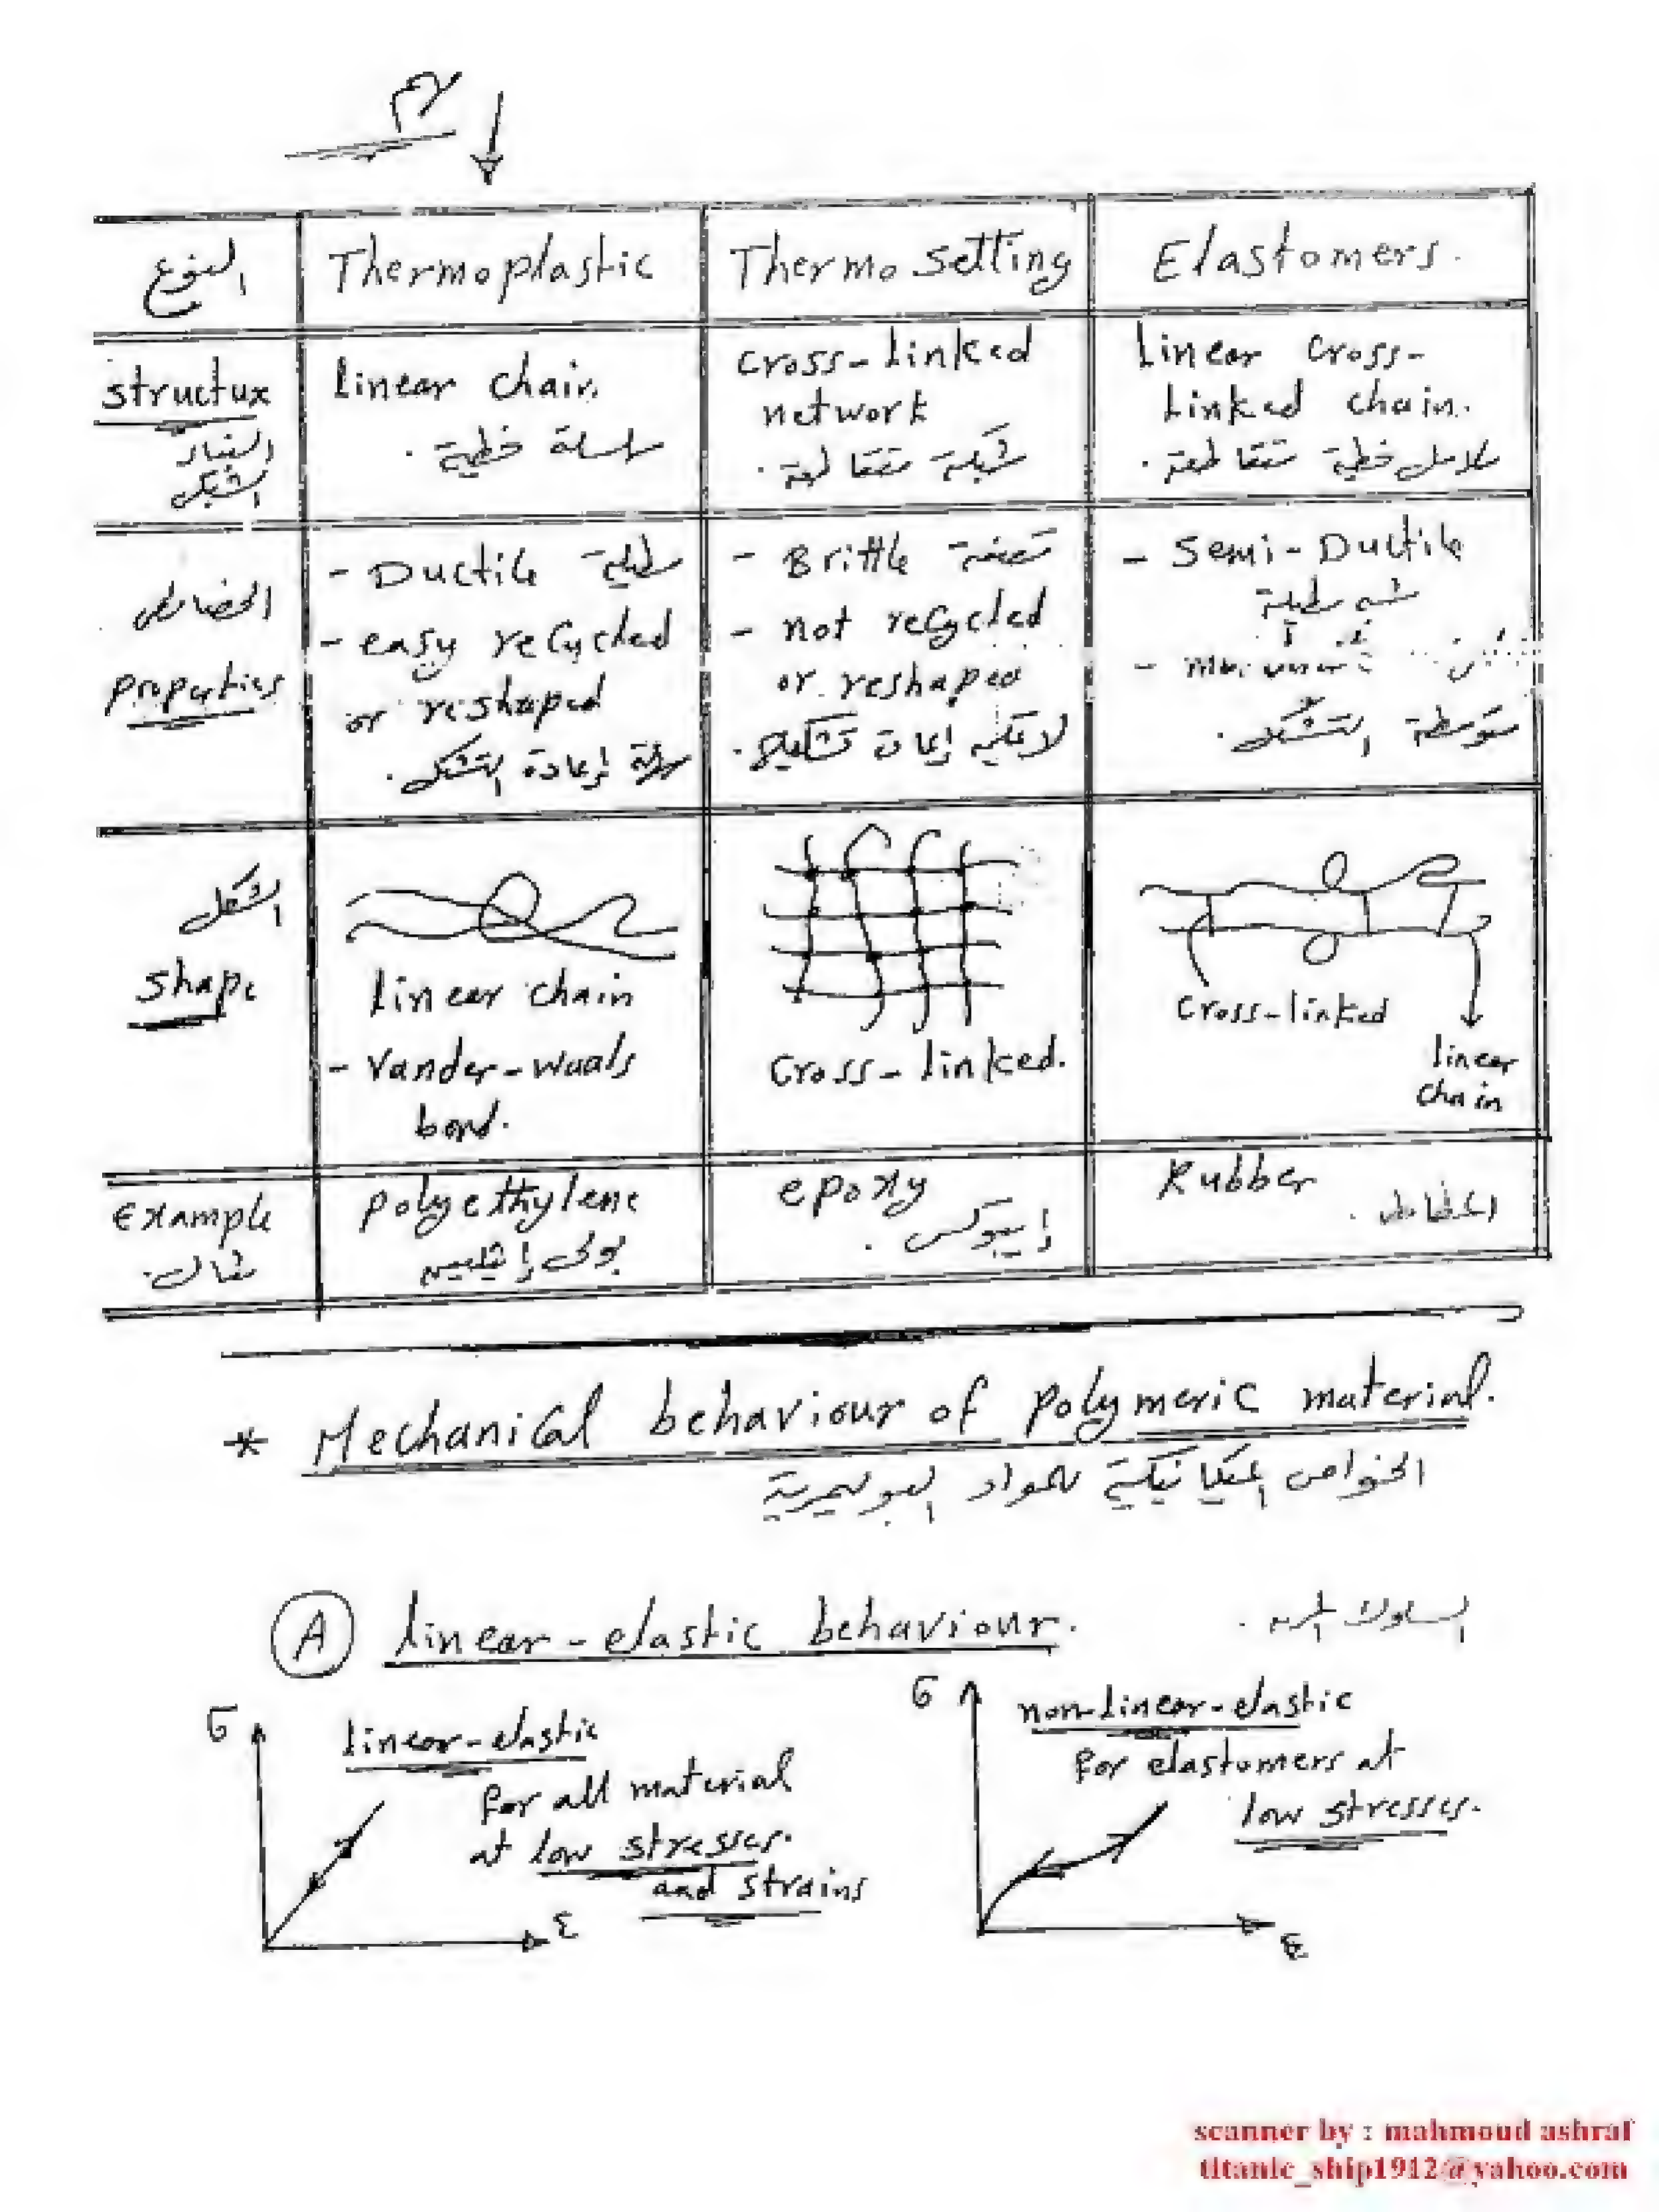 هام
النوع
Thermoplastic
Thermo setting
Elastomers.
structux
البناء
الشبكى
linear chain
سلسلة خطية.
cross-linked
network
شبكة متقاطعة.
Linear cross-
Linked chain.
سلاسل خطية متقاطعة.
الخصائص
properties
- Ductile طيلة
- easy recycled
or reshaped
سهلة إعادة التشكل.
- Brittle قصفة
- not recycled
or reshaped
لا يمكن إعادة تشكيلها.
- Semi-Ductile
شبه طيلة
-
متوسطة التشكل.
الشكل
shape
linear chain
- Vander-waals
bond.
cross-linked.
cross-linked
linear
chain
Example
مثال.
polyethylene
بولى إيثيلين
epoxy
إيبوكس.
Rubber المطاط.
* Mechanical behaviour of polymeric material.
الخواص الميكانيكية للمواد البوليمرية
A linear-elastic behaviour. السلوك المرن.
σ
linear-elastic
for all material
at low stresses.
and strains
ε
σ
non-linear-elastic
for elastomers at
low stresses.
ε
scanner by : mahmoud ashraf
titanic_ship1912@yahoo.com